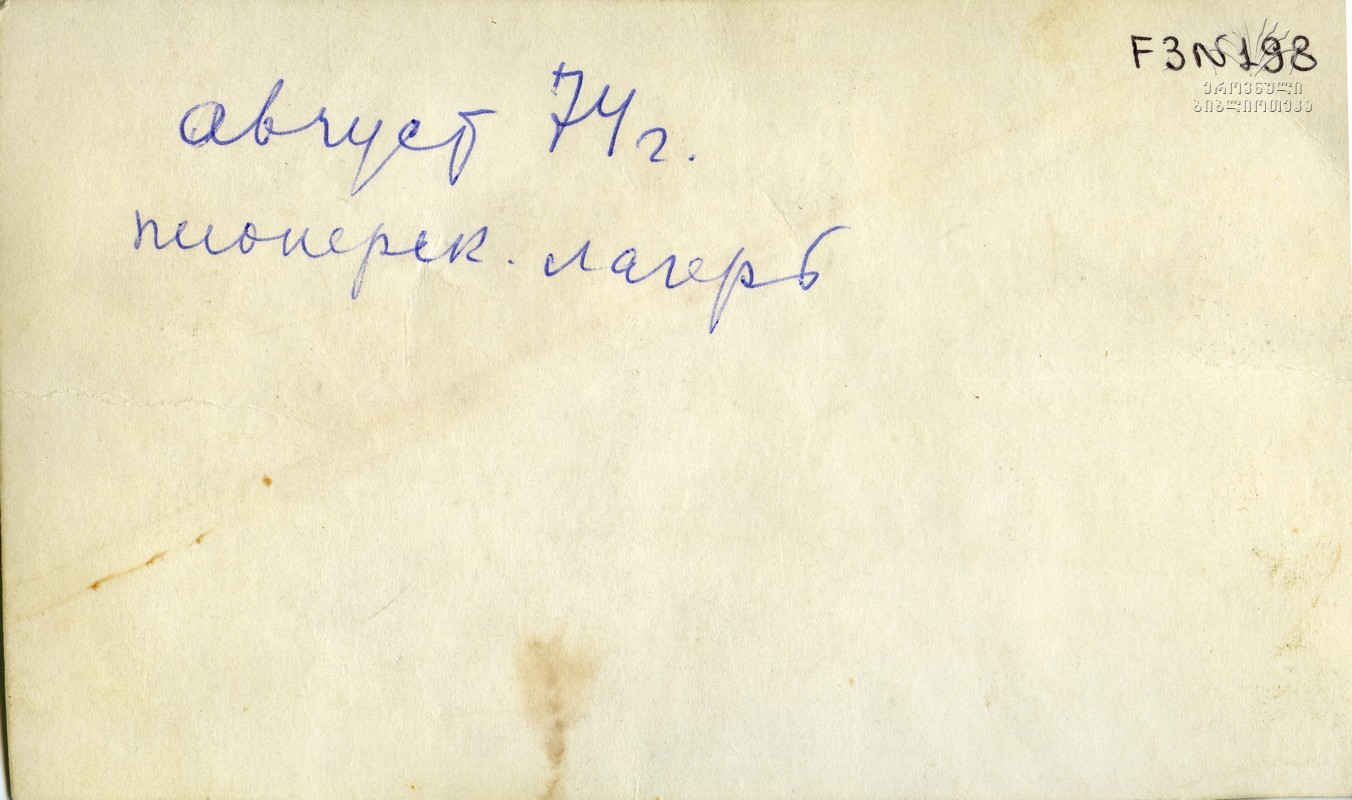 F3N198
ეროვნული
ბიბლიოთეკა
август 74 г.
пионерск. лагерь